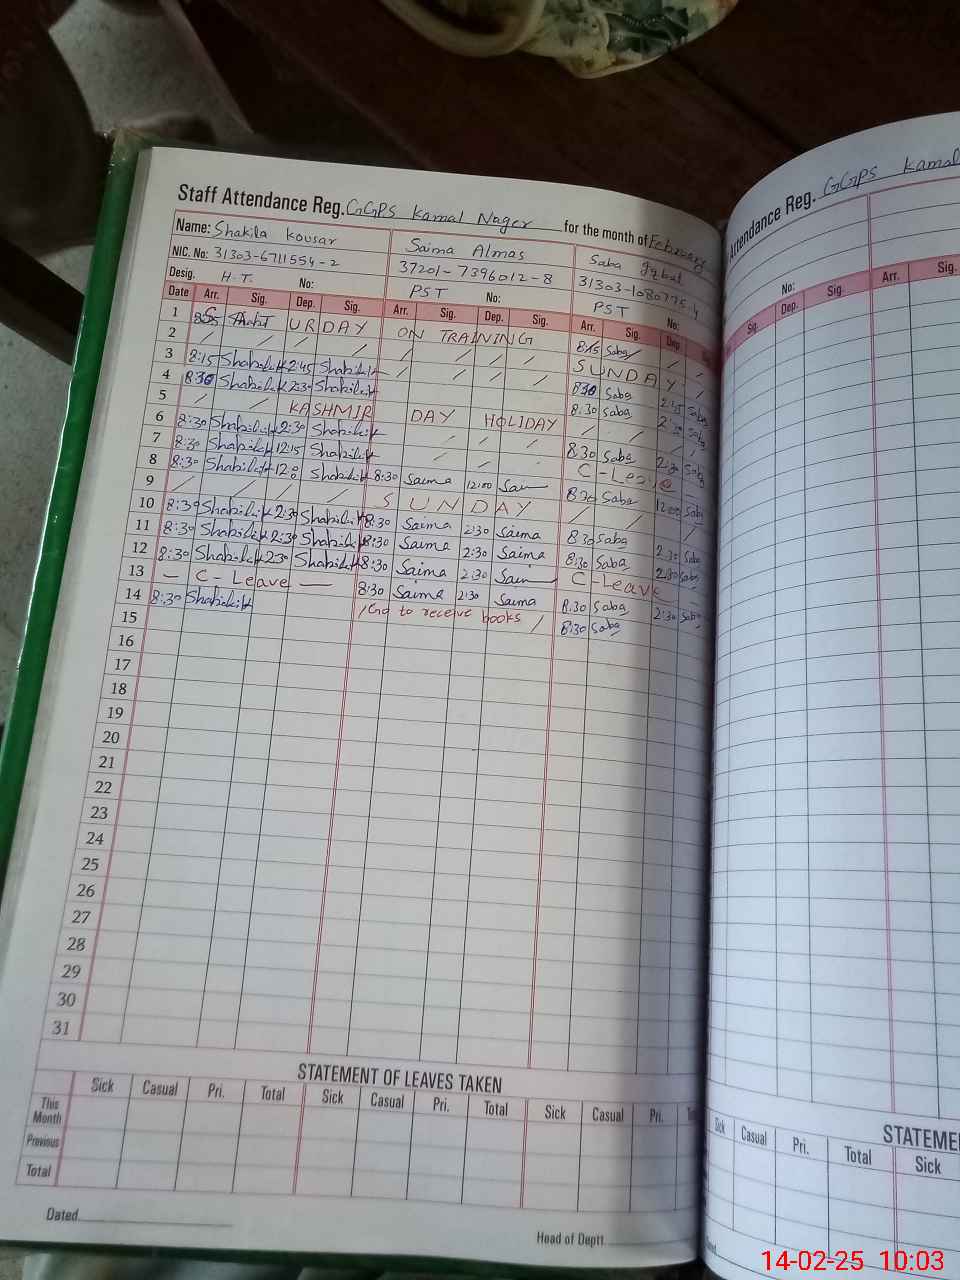 Staff Attendance Reg. GGPS Kamal Nager for the month of February
Name: Shakila Kousar Saima Almas Saba Iqbal
NIC. No: 31303-6711554-2 37201-7396012-8
Desig. H.T. No: PST No: PST No:
Date Arr. Sig. Dep. Sig. Arr. Sig. Dep. Sig. Arr. Sig. Dep
1 ON TRAINING 8:15 Saba
2 / / / / / / / / SUNDAY
3 8:15 2:45 / / / / 8:30 Saba 2:15 Saba
4 8:30 2:3 / / / / 8:30 Saba 2:30 Saba
5 / / KASHMIR DAY HOLIDAY / / / /
6 8:30 2:30 / / / 8:30 Saba 2:30 Saba
7 8:30 12:15 / / / C-Leave -
8 8:30 12:0 8:30 Saima 12:00 8:30 Saba 12:00 Saba
9 / / / / SUNDAY / / /
10 8:30 2:30 8:30 Saima 2:30 Saima 8:30 Saba 2:30 Saba
11 8:30 2:30 8:30 Saima 2:30 Saima 8:30 Saba 2:30 Saba
12 8:30 2:30 8:30 Saima 2:30 C-Leave -
13 - C-Leave - 8:30 Saima 2:30 Saima 8:30 Saba 2:30 Saba
14 8:30 /Go to receive books / 8:30 Saba
15
16
17
18
19
20
21
22
23
24
25
26
27
28
29
30
31
STATEMENT OF LEAVES TAKEN
Sick Casual Pri. Total Sick Casual Pri. Total Sick Casual Pri.
This Month
Previous
Total
Dated
Head of Deptt.
Attendance Reg. GGPS Kamal
No:
Sig. Dep. Arr. Sig.
STATEME
Sick Casual Pri. Total Sick
14-02-25 10:03